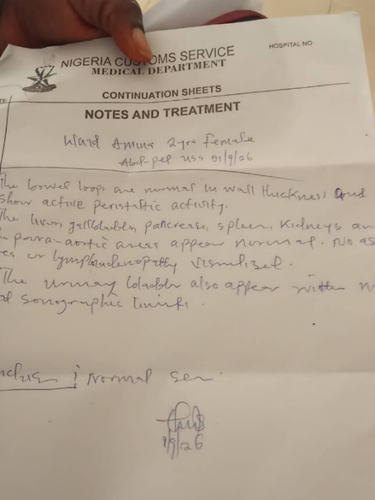 NIGERIA CUSTOMS SERVICE
HOSPITAL NO
MEDICAL DEPARTMENT
CONTINUATION SHEETS
NOTES AND TREATMENT
Amina 2yrs female
Abd-pel USS 01/9/26
The bowel loops are normal in wall thickness and
show active peristaltic activity.
The liver, gallbladder, pancreas, spleen, kidneys
para-aortic areas appear normal. No
or lymphadenopathy visualized.
The urinary bladder also appear within
sonographic limits.
: Normal
1/9/26